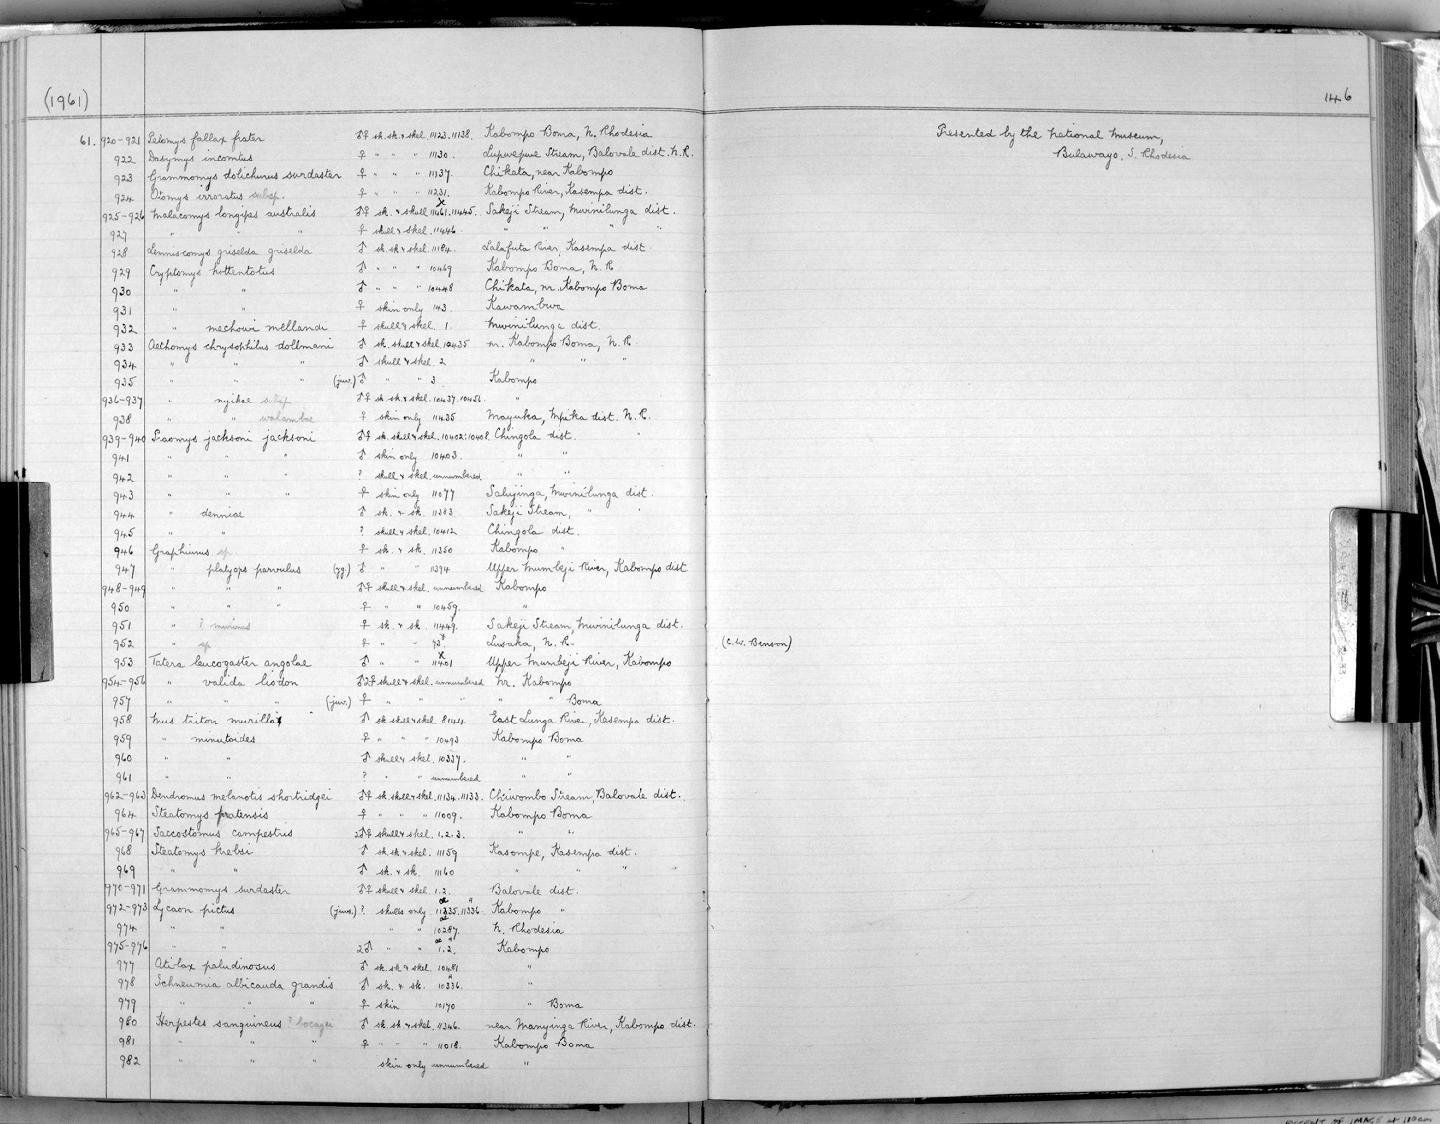 (1961)
146
61. 920-921 Pelomys fallax frater ♂♀ sk. sk. & skel. 11123. 11138. Kabompo Boma, N. Rhodesia Presented by the National Museum,
922 Dasymys incomtus ♀ " " " 11130. Lupwepwe Stream, Balovale dist. N.R. Bulawayo, S. Rhodesia
923 Grammomys dolichurus surdaster ♀ " " " 11137. Chikata, near Kabompo
924 Otomys irroratus subsp. ♀ " " " 11231. Kabompo River, Kasempa dist.
925-926 Malacomys longipes australis ♂♀ sk. & skull 11461. 11445. Sakeji Stream, Mwinilunga dist.
927 " " " ♀ skull & skel. 11446 " " " "
928 Lemniscomys griselda griselda ♂ sk. sk. & skel. 11194. Lalafuta River, Kasempa dist
929 Cryptomys hottentotus ♂ " " " 10469 Kabompo Boma, N.R
930 " " ♂ " " " 10448 Chikata, nr. Kabompo Boma
931 " " ♀ skin only 143. Kawambwa
932 " mechowi mellandi ♀ skull & skel. 1. Mwinilunga dist.
933 Aethomys chrysophilus dollmani ♂ sk. skull & skel. 10435 nr. Kabompo Boma, N.R.
934 " " " ♂ skull & skel. 2 " " "
935 " " " (juv.) ♂ " " 3. Kabompo
936-937 " nyikae subsp ♂♀ sk. sk. & skel. 10437. 10456. "
938 " " walambae ♀ skin only 11435 Mayuka, Mpika dist. N.R.
939-940 Praomys jacksoni jacksoni ♂♀ sk. skull & skel. 10402: 10408. Chingola dist. "
941 " " " ♂ skin only 10403. " "
942 " " " ? skull & skel. unnumbered " "
943 " " " ♀ skin only 11077 Salujinga, Mwinilunga dist.
944 " denniae ♂ sk. & sk. 11383. Sakeji Stream, " "
945 " " ? skull & skel. 10412 Chingola dist.
946 Graphiurus sp. ♀ sk. & sk. 11350 Kabompo "
947 " platyops parvulus (yg.) ♂ " " 11394 Upper Mumbeji River, Kabompo dist
948-949 " " " ♂♀ skull & skel. unnumbered Kabompo
950 " " " ♀ " " 10459. "
951 " ? murinus ♀ sk. & sk. 11449. Sakeji Stream, Mwinilunga dist.
952 " sp ♀ " " Lusaka, N.R. (C.W. Benson)
953 Tatera leucogaster angolae ♂ " " 11401 Upper Mumbeji River, Kabompo
954-956 " valida liodon ♂2♀ skull & skel. unnumbered Nr. Kabompo
957 " " " (juv.) ♀ " " " " " Boma
958 Mus triton murilla ♂ sk. skull & skel. East Lunga River, Kasempa dist.
959 " minutoides ♀ " " " 10493 Kabompo Boma
960 " " ♂ skull & skel. 10337. " "
961 " " ? " " unnumbered " "
962-963 Dendromus melanotis shortridgei ♂♀ sk. skull & skel. 11134. 11133. Chiwombo Stream, Balovale dist.
964 Steatomys pratensis ♀ " " " 11009. Kabompo Boma
965-967 Saccostomus campestris 2♂♀ skull & skel. 1. 2. 3. " "
968 Steatomys krebsi ♂ sk. sk. & skel. 11159 Kasompe, Kasempa dist.
969 " " ♂ sk. & sk. 11160 " " "
970-971 Grammomys surdaster ♂♀ skull & skel. 1. 2. Balovale dist.
972-973 Lycaon pictus (juvs.) ? skulls only 11335. 11336 Kabompo "
974 " " " " 10287. N. Rhodesia
975-976 " " 2♂ " " 1. 2. Kabompo
977 Atilax paludinosus ♂ sk. sk. & skel. 10481. "
978 Ichneumia albicauda grandis ♂ sk. & sk. 10336. "
979 " " " ♀ skin 10170 " Boma
980 Herpestes sanguineus ? bocagei ♂ sk. sk & skel. 11346. near Manyinga River, Kabompo dist.
981 " " " ♀ " " " 11018. Kabompo Boma
982 " " " skin only unnumbered "
EXTENT OF IMAGE at